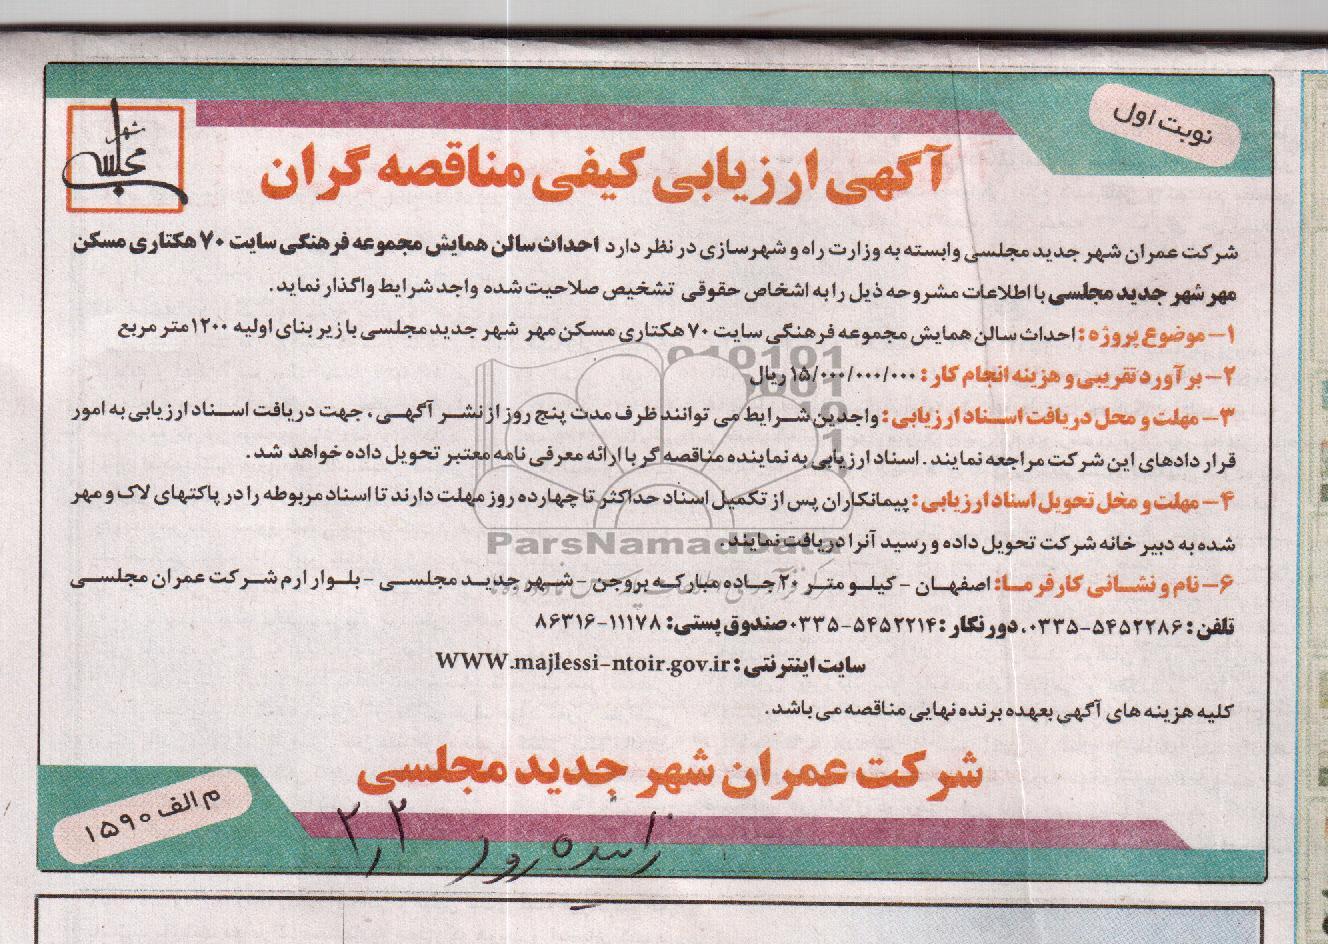 نوبت اول
شهر مجلسی
آگهی ارزیابی کیفی مناقصه گران
شرکت عمران شهر جدید مجلسی وابسته به وزارت راه و شهرسازی در نظر دارد احداث سالن همایش مجموعه فرهنگی سایت ۷۰ هکتاری مسکن
مهر شهر جدید مجلسی با اطلاعات مشروحه ذیل را به اشخاص حقوقی تشخیص صلاحیت شده واجد شرایط واگذار نماید.
۱- موضوع پروژه: احداث سالن همایش مجموعه فرهنگی سایت ۷۰ هکتاری مسکن مهر شهر جدید مجلسی با زیر بنای اولیه ۱۲۰۰ متر مربع
۲- برآورد تقریبی و هزینه انجام کار: ۱۵/۰۰۰/۰۰۰/۰۰۰ ریال
۳- مهلت و محل دریافت اسناد ارزیابی: واجدین شرایط می توانند ظرف مدت پنج روز از نشر آگهی، جهت دریافت اسناد ارزیابی به امور
قرار دادهای این شرکت مراجعه نمایند. اسناد ارزیابی به نماینده مناقصه گر با ارائه معرفی نامه معتبر تحویل داده خواهد شد.
۴- مهلت و محل تحویل اسناد ارزیابی: پیمانکاران پس از تکمیل اسناد حداکثر تا چهارده روز مهلت دارند تا اسناد مربوطه را در پاکتهای لاک و مهر
شده به دبیر خانه شرکت تحویل داده و رسید آنرا دریافت نمایند.
۶- نام و نشانی کارفرما: اصفهان - کیلو متر ۲۰ جاده مبارکه بروجن - شهر جدید مجلسی - بلوار ارم شرکت عمران مجلسی
تلفن: ۵۴۵۲۲۸۶-۰۳۳۵، دورنگار: ۵۴۵۲۲۱۴-۰۳۳۵ صندوق پستی: ۱۱۱۷۸-۸۶۳۱۶
سایت اینترنتی: WWW.majlessi-ntoir.gov.ir
کلیه هزینه های آگهی بعهده برنده نهایی مناقصه می باشد.
شرکت عمران شهر جدید مجلسی
م الف ۱۵۹۰
زاینده رود ۲٫۲
ParsNamadData